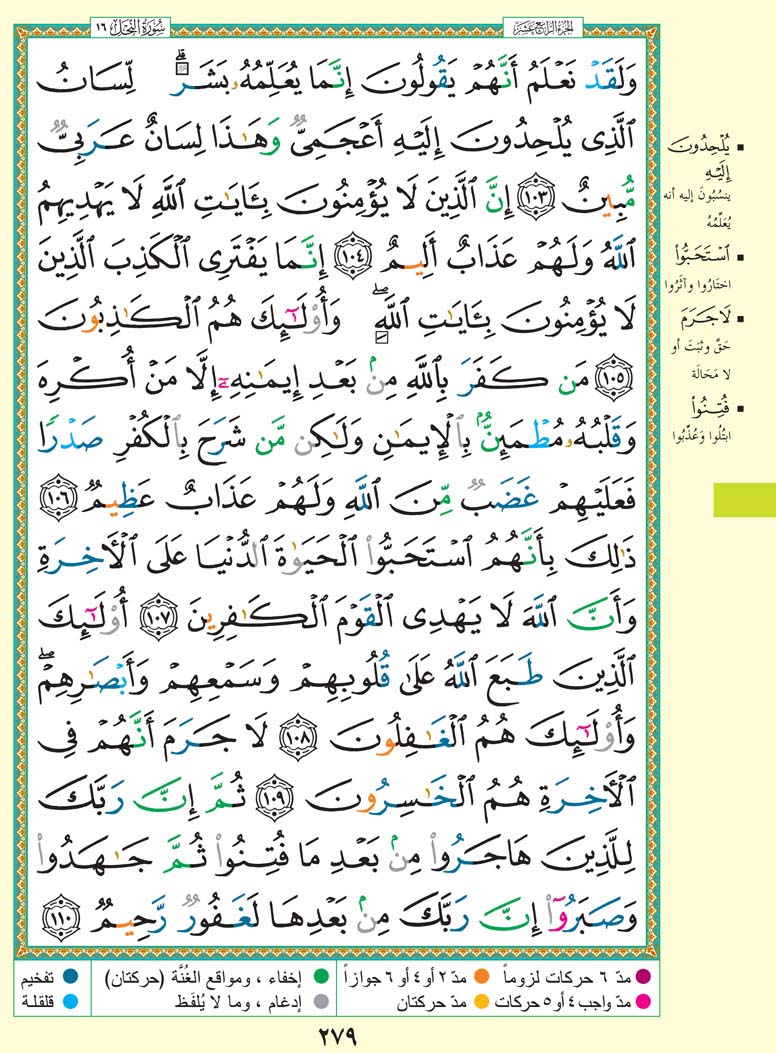 الجزء الرابع عشر
سورة النحل ١٦
وَلَقَدْ نَعْلَمُ أَنَّهُمْ يَقُولُونَ إِنَّمَا يُعَلِّمُهُۥ بَشَرٌۗ لِّسَانُ
ٱلَّذِى يُلْحِدُونَ إِلَيْهِ أَعْجَمِىٌّ وَهَٰذَا لِسَانٌ عَرَبِىٌّ
مُّبِينٌ ١٠٣ إِنَّ ٱلَّذِينَ لَا يُؤْمِنُونَ بِـَٔايَٰتِ ٱللَّهِ لَا يَهْدِيهِمُ
ٱللَّهُ وَلَهُمْ عَذَابٌ أَلِيمٌ ١٠٤ إِنَّمَا يَفْتَرِى ٱلْكَذِبَ ٱلَّذِينَ
لَا يُؤْمِنُونَ بِـَٔايَٰتِ ٱللَّهِۖ وَأُو۟لَٰٓئِكَ هُمُ ٱلْكَٰذِبُونَ
١٠٥ مَن كَفَرَ بِٱللَّهِ مِنۢ بَعْدِ إِيمَٰنِهِۦٓ إِلَّا مَنْ أُكْرِهَ
وَقَلْبُهُۥ مُطْمَئِنٌّۢ بِٱلْإِيمَٰنِ وَلَٰكِن مَّن شَرَحَ بِٱلْكُفْرِ صَدْرًا
فَعَلَيْهِمْ غَضَبٌ مِّنَ ٱللَّهِ وَلَهُمْ عَذَابٌ عَظِيمٌ ١٠٦
ذَٰلِكَ بِأَنَّهُمُ ٱسْتَحَبُّوا۟ ٱلْحَيَوٰةَ ٱلدُّنْيَا عَلَى ٱلْـَٔاخِرَةِ
وَأَنَّ ٱللَّهَ لَا يَهْدِى ٱلْقَوْمَ ٱلْكَٰفِرِينَ ١٠٧ أُو۟لَٰٓئِكَ
ٱلَّذِينَ طَبَعَ ٱللَّهُ عَلَىٰ قُلُوبِهِمْ وَسَمْعِهِمْ وَأَبْصَٰرِهِمْۖ
وَأُو۟لَٰٓئِكَ هُمُ ٱلْغَٰفِلُونَ ١٠٨ لَا جَرَمَ أَنَّهُمْ فِى
ٱلْـَٔاخِرَةِ هُمُ ٱلْخَٰسِرُونَ ١٠٩ ثُمَّ إِنَّ رَبَّكَ
لِلَّذِينَ هَاجَرُوا۟ مِنۢ بَعْدِ مَا فُتِنُوا۟ ثُمَّ جَٰهَدُوا۟
وَصَبَرُوٓا۟ إِنَّ رَبَّكَ مِنۢ بَعْدِهَا لَغَفُورٌ رَّحِيمٌ ١١٠
▪ يُلْحِدُونَ
إِلَيْهِ
ينسُبُونَ إليه أنه
يُعَلِّمُهُ
▪ ٱسْتَحَبُّوا۟
اختَارُوا وآثَرُوا
▪ لَا جَرَمَ
حَقَّ وثَبَتَ أو
لا مَحَالَة
▪ فُتِنُوا۟
ابتُلُوا وَعُذِّبُوا
مدّ ٦ حركات لزوماً ● مدّ ٢ أو ٤ أو ٦ جوازاً
مدّ واجب ٤ أو ٥ حركات ● مدّ حركتان
إخفاء ، ومواقع الغُنَّة (حركتان)
إدغام ، وما لا يُلفَظ
تفخيم
قلقلة
٢٧٩